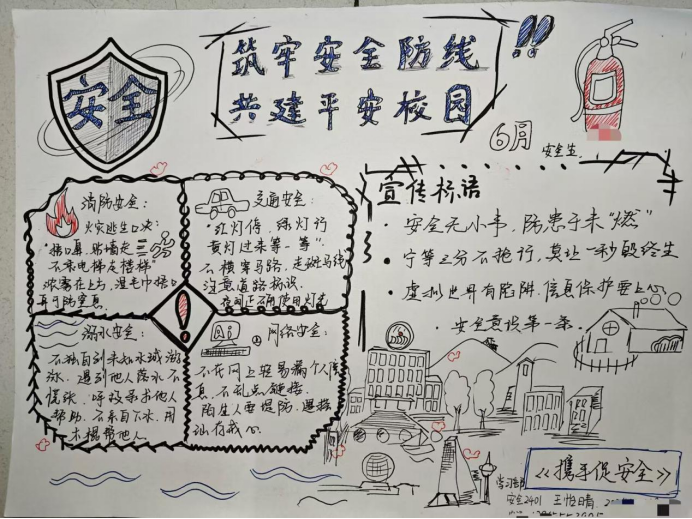 安全
筑牢安全防线
共建平安校园
6月
安全生
消防安全:
火灾逃生口决:
捂口鼻,贴墙走
不乘电梯走楼梯
浓雾在上方,湿毛巾捂口
鼻可防窒息
交通安全:
"红灯停,绿灯行
黄灯过来等一等"
不横穿马路,走斑马线
注意道路标识
夜间正确使用灯光
溺水安全:
不独自到未知水域游
泳,遇到他人落水不
慌张,呼救寻求他人
帮助,不亲自下水,用
木棍帮他人
Ai
网络安全:
不在网上轻易漏个人信
息,不乱点链接
陌生人要提防,遇骗
宣传标语
· 安全无小事,防患于未"燃"
· 宁等三分不抢行,莫让一秒毁终生
· 虚拟世界有陷阱,信息保护要上心
· 安全意识第一条
《携手促安全》
学习部
安全2401 王怡晴